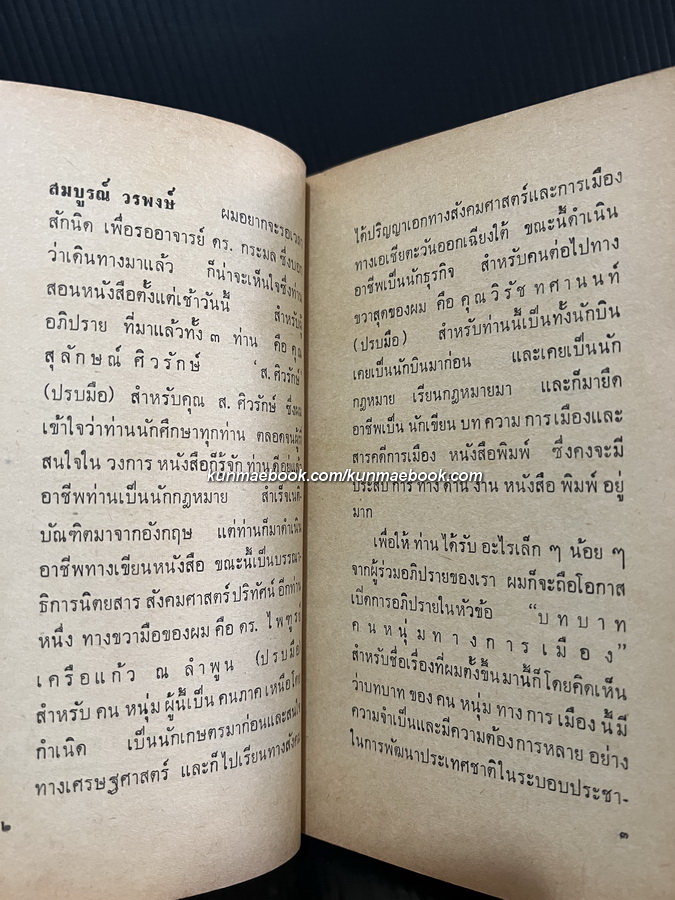 สมบูรณ์ วรพงษ์ ผมอยากจะรอเวลา
สักนิด เพื่อรออาจารย์ ดร. กระมล ซึ่งบอก
ว่าเดินทางมาแล้ว ก็น่าจะเห็นใจซึ่งท่าน
สอนหนังสือตั้งแต่เช้าวันนี้ สำหรับผู้
อภิปราย ที่มาแล้วทั้ง ๓ ท่าน คือ คุณ
สุลักษณ์ ศิวรักษ์ 'ส. ศิวรักษ์'
(ปรบมือ) สำหรับคุณ ส. ศิวรักษ์ ซึ่งผม
เข้าใจว่าท่านนักศึกษาทุกท่าน ตลอดจนผู้ที่
สนใจใน วงการ หนังสือก็รู้จัก ท่าน ดีอยู่แล้ว
อาชีพท่านเป็นนักกฎหมาย สำเร็จเนติ-
บัณฑิตมาจากอังกฤษ แต่ท่านก็มาดำเนิน
อาชีพทางเขียนหนังสือ ขณะนี้เป็นบรรณา-
ธิการนิตยสาร สังคมศาสตร์ปริทัศน์ อีกท่าน
หนึ่ง ทางขวามือของผม คือ ดร. ไพฑูรย์
เครือแก้ว ณ ลำพูน (ปรบมือ)
สำหรับ คน หนุ่ม ผู้นี้เป็น คนภาค เหนือโดย
กำเนิด เป็นนักเกษตรมาก่อนและสนใจ
ทางเศรษฐศาสตร์ และก็ไปเรียนทางสังคม
๒
ได้ปริญญาเอกทางสังคมศาสตร์และการเมือง
ทางเอเชียตะวันออกเฉียงใต้ ขณะนี้ดำเนิน
อาชีพเป็นนักธุรกิจ สำหรับคนต่อไปทาง
ขวาสุดของผม คือ คุณ วิรัช ทศานนท์
(ปรบมือ) สำหรับท่านนี้เป็นทั้งนักบิน
เคยเป็นนักบินมาก่อน และเคยเป็นนัก
กฎหมาย เรียนกฎหมายมา และก็มายึด
อาชีพเป็น นักเขียน บท ความ การ เมืองและ
สารคดีการเมือง หนังสือพิมพ์ ซึ่งคงจะมี
kunmaebook.com/kunmaebook.com
ประสบ การ ทาง ด้าน งาน หนังสือ พิมพ์ อยู่
มาก
เพื่อให้ ท่าน ได้รับ อะไรเล็ก ๆ น้อย ๆ
จากผู้ร่วมอภิปรายของเรา ผมก็จะถือโอกาส
เปิดการอภิปรายในหัวข้อ "บทบาท
คนหนุ่มทางการเมือง"
สำหรับชื่อเรื่องที่ผมตั้งขึ้น มานี้ก็โดยคิดเห็น
ว่าบทบาท ของ คน หนุ่ม ทาง การ เมือง นี้ มี
ความจำเป็นและมีความต้องการหลาย อย่าง
ในการพัฒนาประเทศชาติในระบอบประชา-
๓